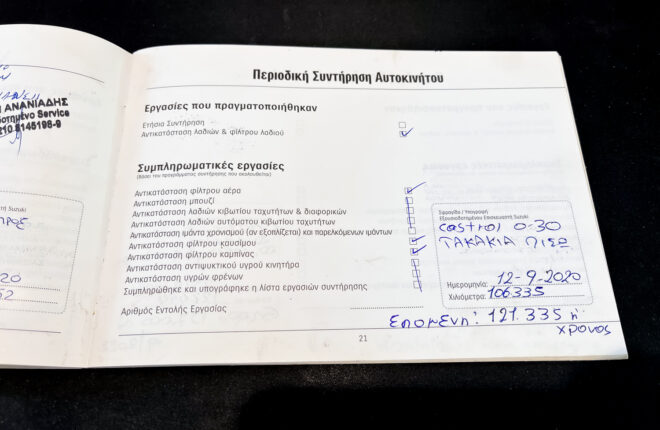 ΑΝΑΝΙΑΔΗΣ
Service
210 5145198-9
Suzuki
Περιοδική Συντήρηση Αυτοκινήτου
Εργασίες που πραγματοποιήθηκαν
Ετήσια Συντήρηση
Αντικατάσταση λαδιών & φίλτρου λαδιού
Συμπληρωματικές εργασίες
(Βάσει του προγράμματος συντήρησης που ακολουθείται)
Αντικατάσταση φίλτρου αέρα
Αντικατάσταση μπουζί
Αντικατάσταση λαδιών κιβωτίου ταχυτήτων & διαφορικών
Αντικατάσταση λαδιών αυτόματου κιβωτίου ταχυτήτων
Αντικατάσταση ιμάντα χρονισμού (αν εξοπλίζεται) και παρελκόμενων ιμάντων
Αντικατάσταση φίλτρου καυσίμου
Αντικατάσταση φίλτρου καμπίνας
Αντικατάσταση αντιψυκτικού υγρού κινητήρα
Αντικατάσταση υγρών φρένων
Συμπληρώθηκε και υπογράφηκε η λίστα εργασιών συντήρησης
Αριθμός Εντολής Εργασίας
Σφραγίδα / Υπογραφή
Εξουσιοδοτημένου Επισκευαστή Suzuki
castrol 0-30
ΤΑΚΑΚΙΑ ΠΙΣΩ
Ημερομηνία: 12-9-2020
Χιλιόμετρα: 106335
Επομενη: 121.335 ή
χρονος
21